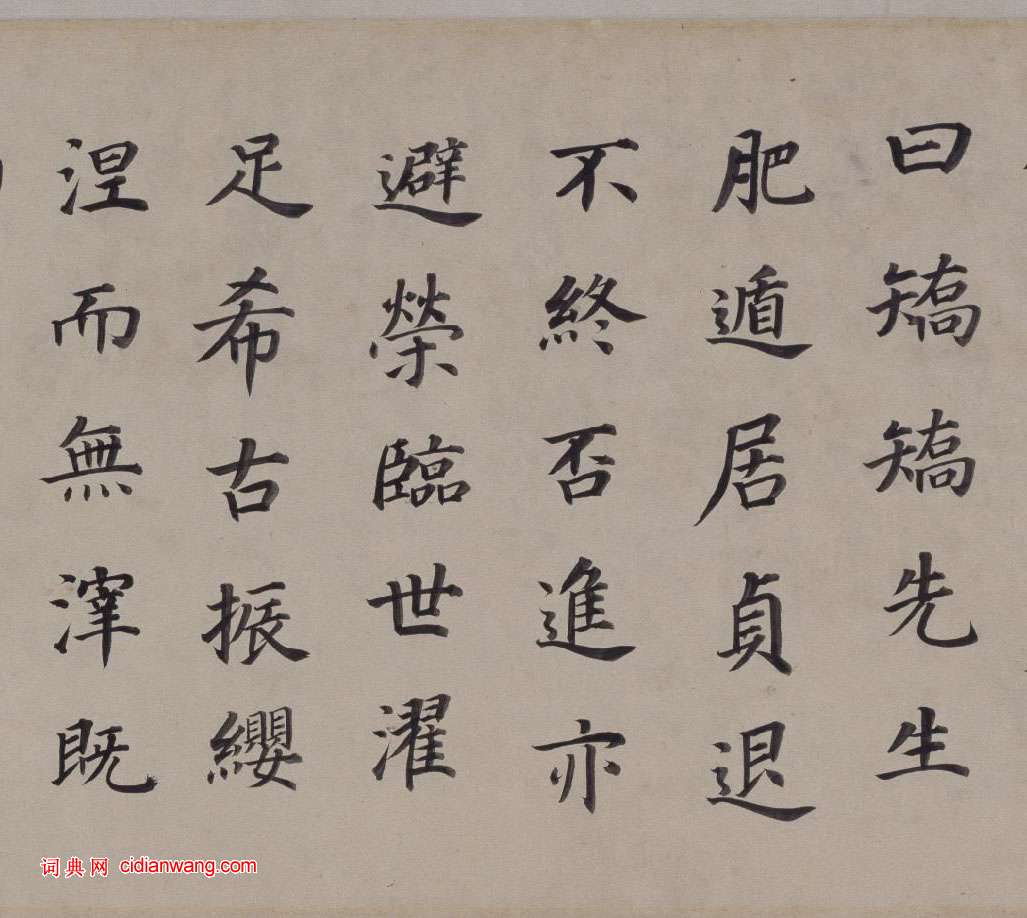 曰矯矯先生
肥遁居貞退
不終否進亦
避榮臨世濯
足希古振纓
涅而無滓既
词典网 cidianwang.com